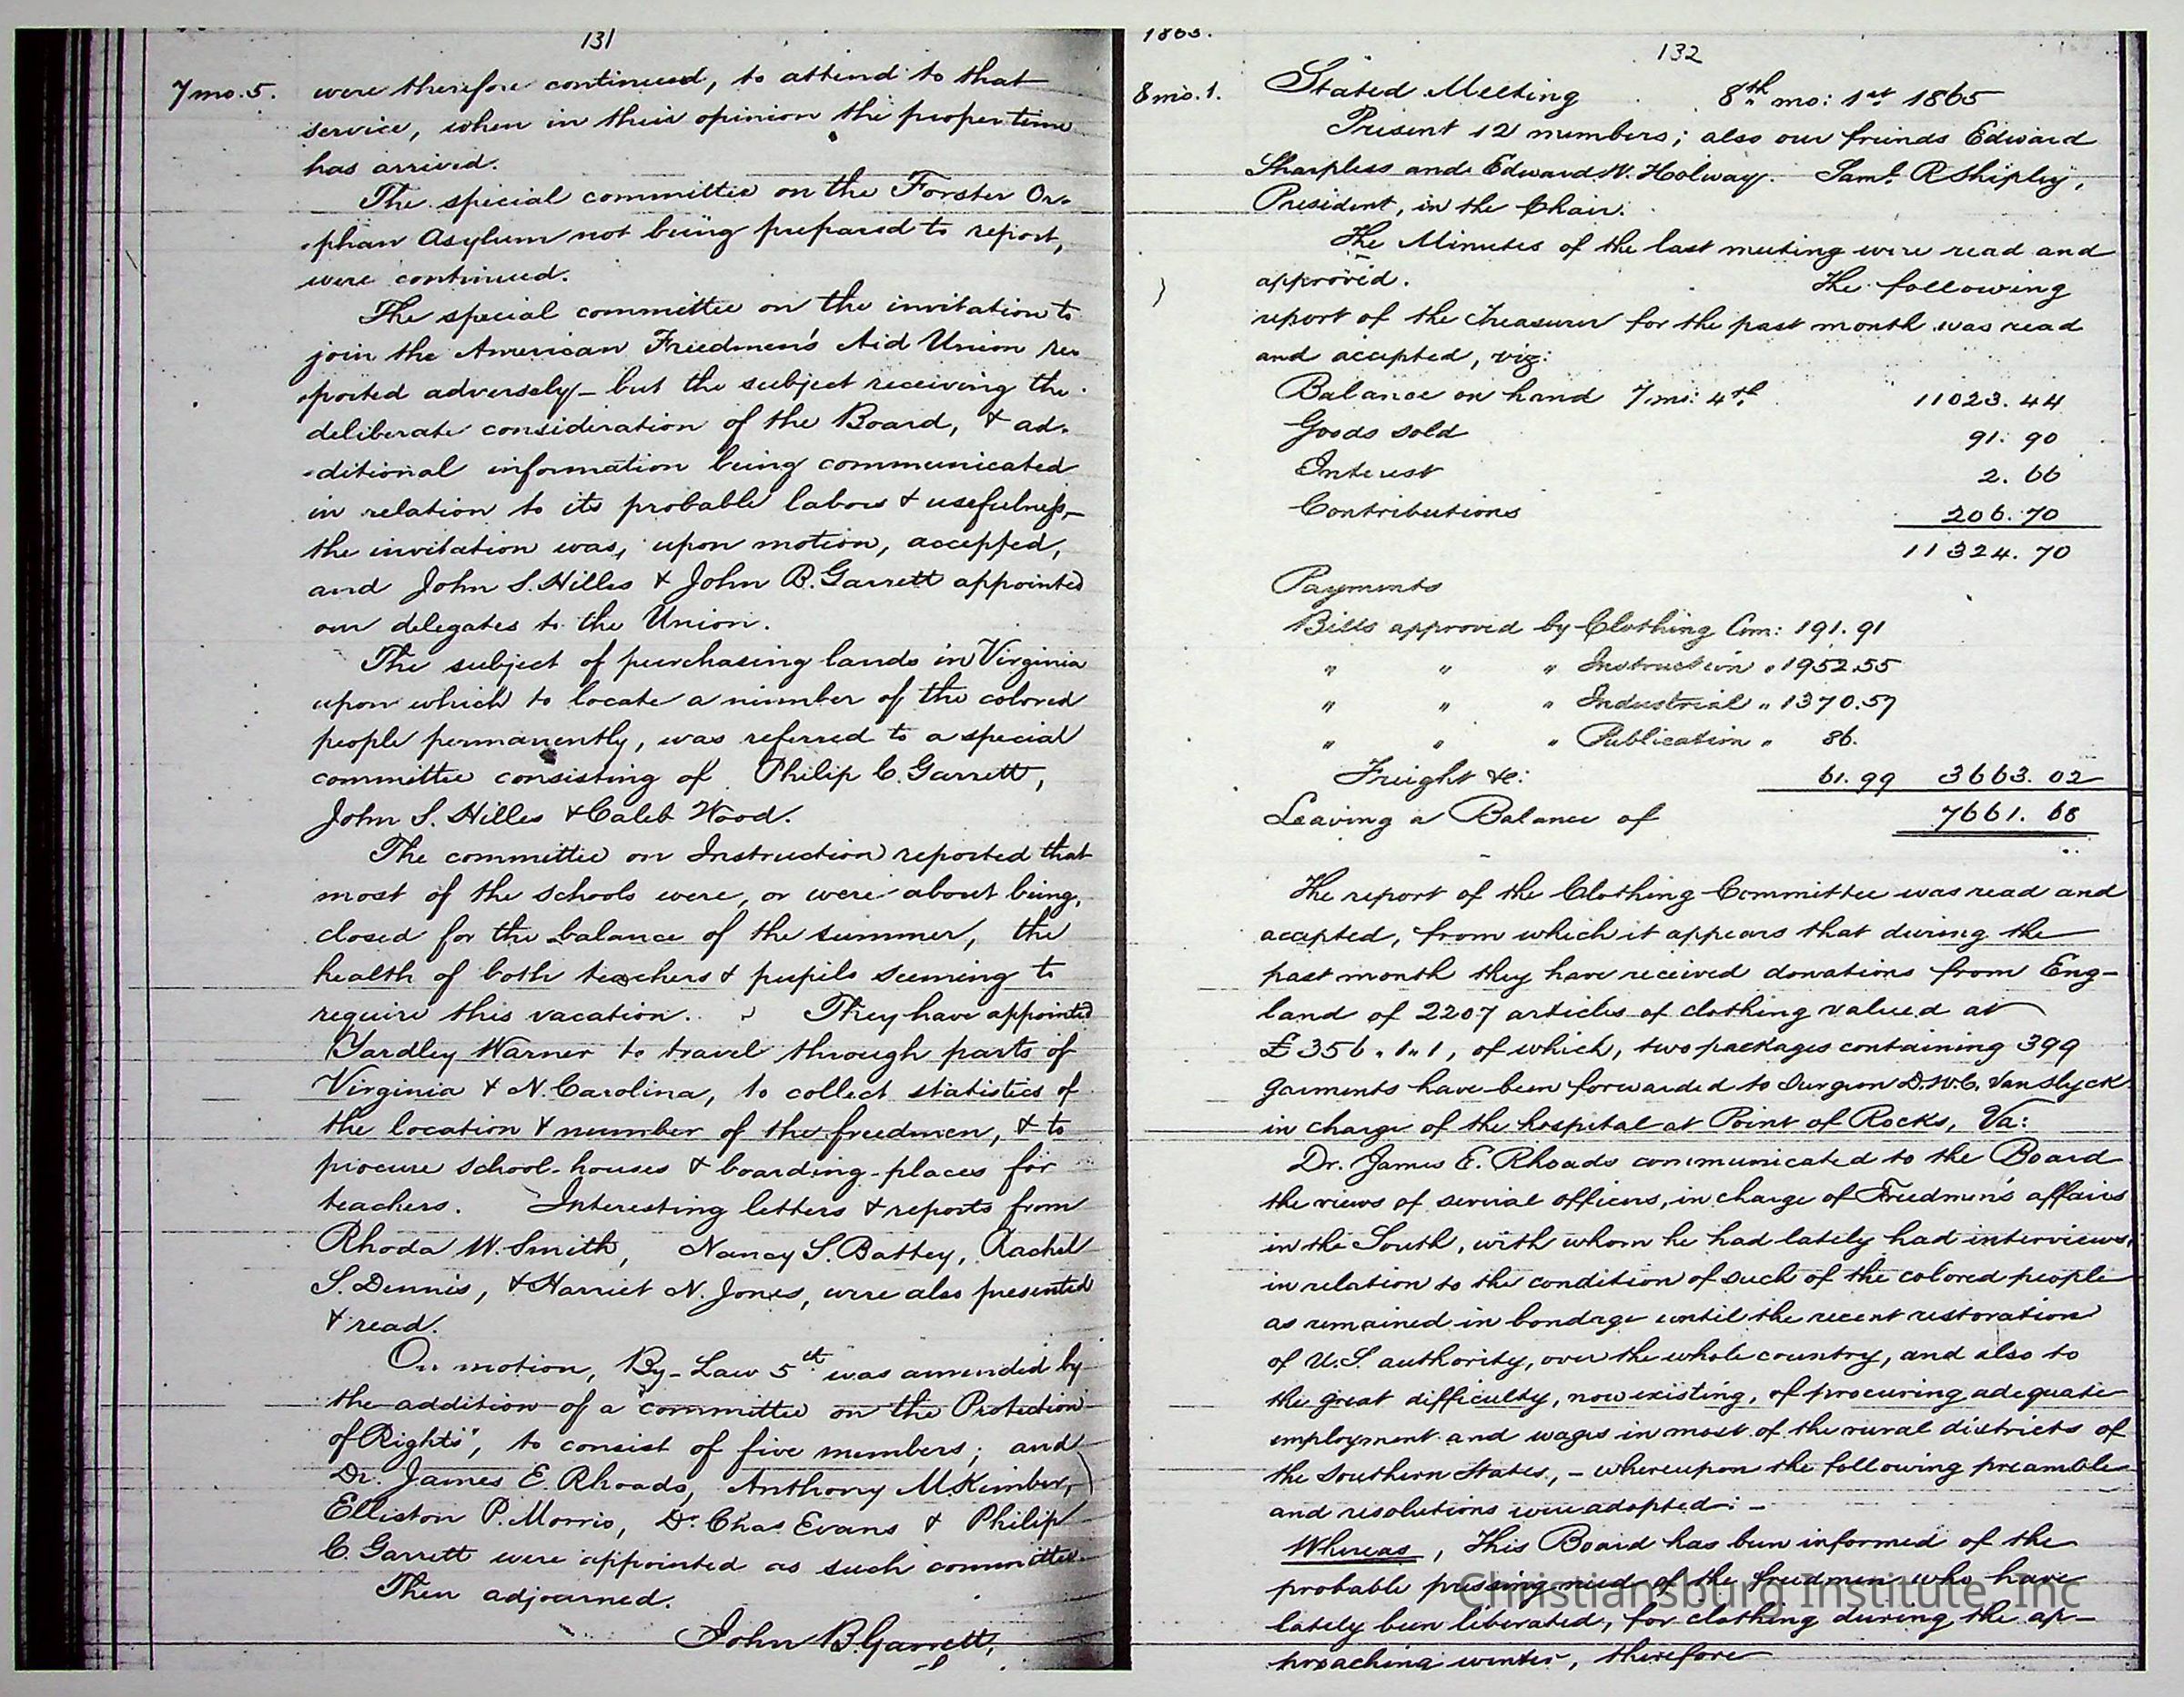 131
7 mo. 5. were therefore continued, to attend to that
service, when in their opinion the proper time
has arrived.
The special committee on the Forster Or-
-phan Asylum not being prepared to report,
were continued.
The special committee on the invitation to
join the American Freedmen's Aid Union re-
-ported adversely – but the subject receiving the
deliberate consideration of the Board, & ad-
-ditional information being communicated
in relation to its probable labors & usefulness,–
the invitation was, upon motion, accepted,
and John S. Hilles & John B. Garrett appointed
our delegates to the Union.
The subject of purchasing lands in Virginia
upon which to locate a number of the colored
people permanently, was referred to a special
committee consisting of Philip C. Garrett,
John S. Hilles & Caleb Wood.
The committee on Instruction reported that
most of the schools were, or were about being,
closed for the balance of the summer, the
health of both teachers & pupils seeming to
require this vacation. They have appointed
Yardley Warner to travel through parts of
Virginia & N. Carolina, to collect statistics of
the location & number of the freedmen, & to
procure school-houses & boarding-places for
teachers. Interesting letters & reports from
Rhoda W. Smith, Nancy S. Battey, Rachel
S. Dennis, & Harriet N. Jones, were also presented
& read.
On motion, By-Law 5th was amended by
the addition of a "committee on the Protection
of Rights", to consist of five members; and
Dr. James E. Rhoads, Anthony M. Kimber,
Elliston P. Morris, Dr. Chas. Evans & Philip
C. Garrett were appointed as such committee.
Then adjourned.
John B. Garrett,
1865.
132
8 mo. 1. Stated Meeting 8th mo: 1st 1865
Present 12 members; also our friends Edward
Sharpless and Edward W. Holway. Saml. R Shipley,
President, in the Chair.
The Minutes of the last meeting were read and
approved. The following
report of the Treasurer for the past month was read
and accepted, viz:
Balance on hand 7 mo: 4th 11023.44
Goods sold 91.90
Interest 2.66
Contributions 206.70
11324.70
Payments
Bills approved by Clothing Com: 191.91
" " " Instruction " 1952.55
" " " Industrial " 1370.57
" " " Publication " 86.
Freight &c: 61.99 3663.02
Leaving a Balance of 7661.68
The report of the Clothing Committee was read and
accepted, from which it appears that during the
past month they have received donations from Eng-
land of 2207 articles of clothing valued at
£356.1.1, of which, two packages containing 399
garments have been forwarded to Surgeon D.W.C. Van Slyck
in charge of the hospital at Point of Rocks, Va:
Dr. James E. Rhoads communicated to the Board
the views of several officers, in charge of Freedmen's affairs
in the South, with whom he had lately had interviews,
in relation to the condition of such of the colored people
as remained in bondage until the recent restoration
of U.S. authority, over the whole country, and also to
the great difficulty, now existing, of procuring adequate
employment and wages in most of the rural districts of
the Southern States, – whereupon the following preamble
and resolutions were adopted: –
Whereas, This Board has been informed of the
probable pressing need of the freedmen who have
lately been liberated, for clothing during the ap-
proaching winter, therefore
Christiansburg Institute, Inc